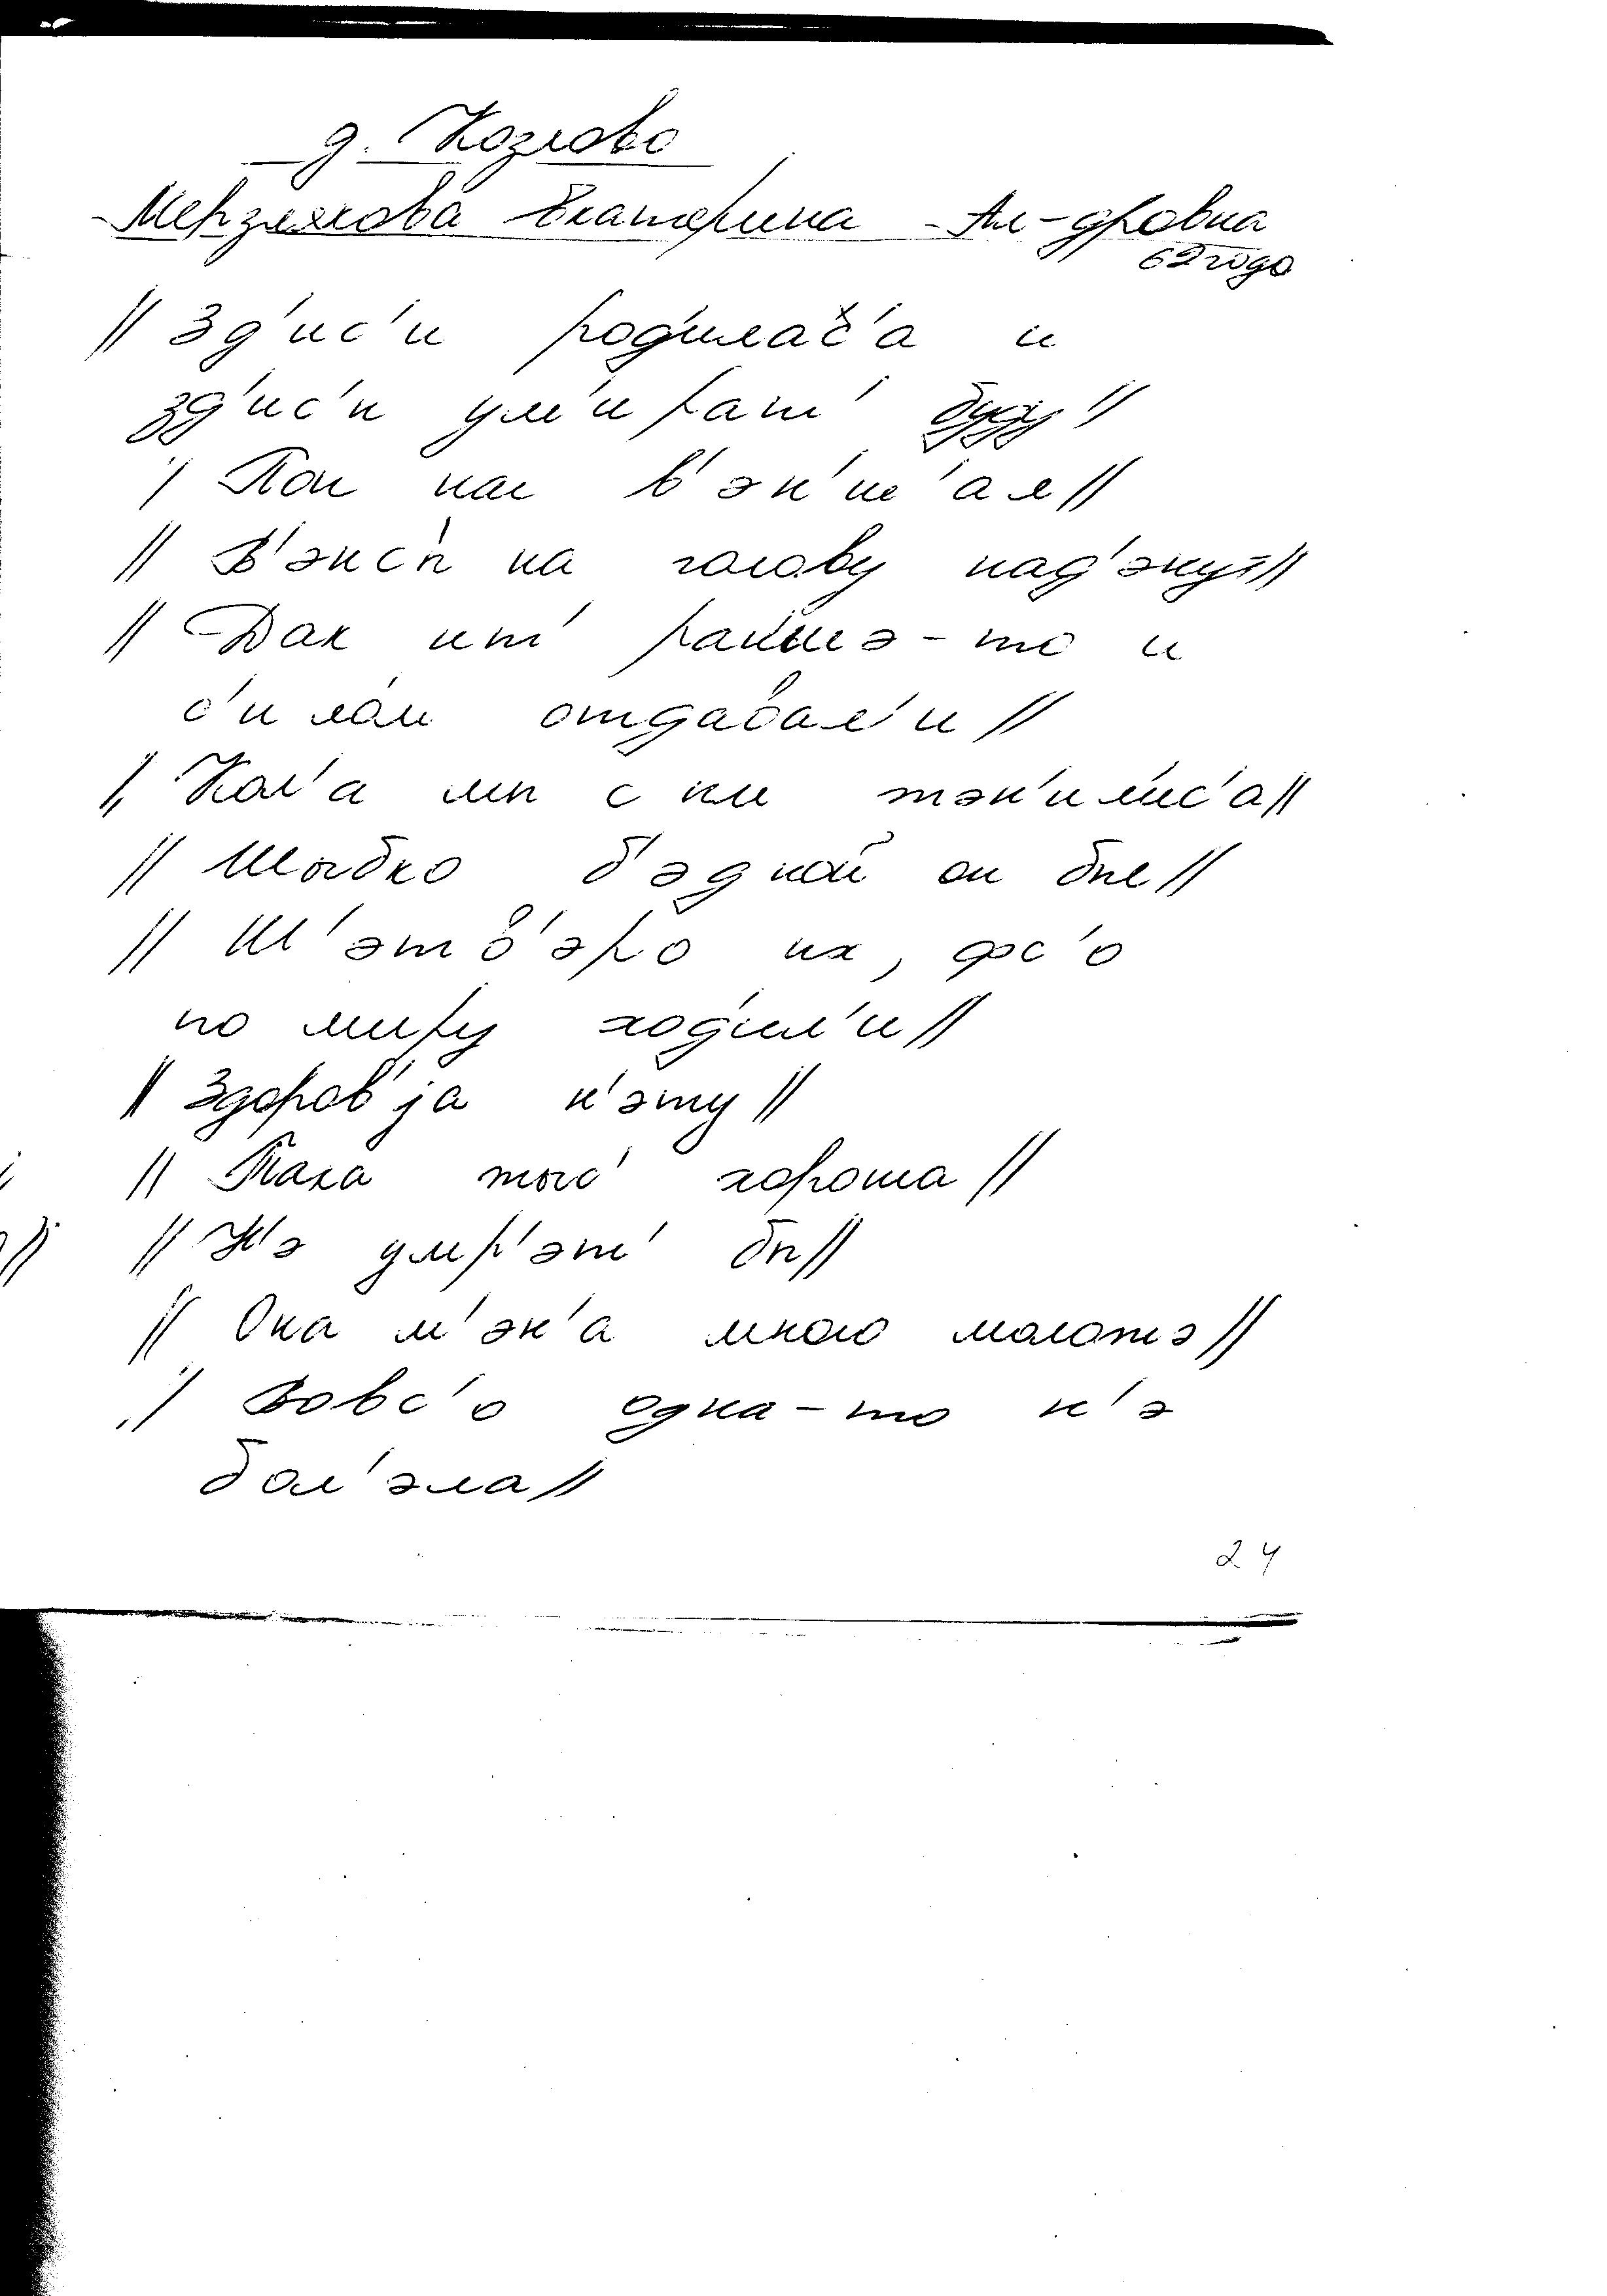 д. Козлово
Мерзлякова Екатерина Ал-дровна
62 года
// Зд'ис'и род'илас'а и
зд'ис'и ум'ират' буду //
/ Поп нас в'эн'ч'ал //
// В'энсы на голову над'энут //
// Дак ит' раншэ-то и
с'илой отдавал'и //
// Кол'а мы с им тэн'ил'ис'а //
// Шыбко б'эдной он был //
// Ш'этв'эро их, фс'о
по миру ход'ил'и //
// Здоров'jа н'эту //
// Така тыс' хороша //
// Н'э умр'эт' бы //
// Она м'эн'а много моложэ //
// Вовс'о одна-то н'э
бол'эла //
24